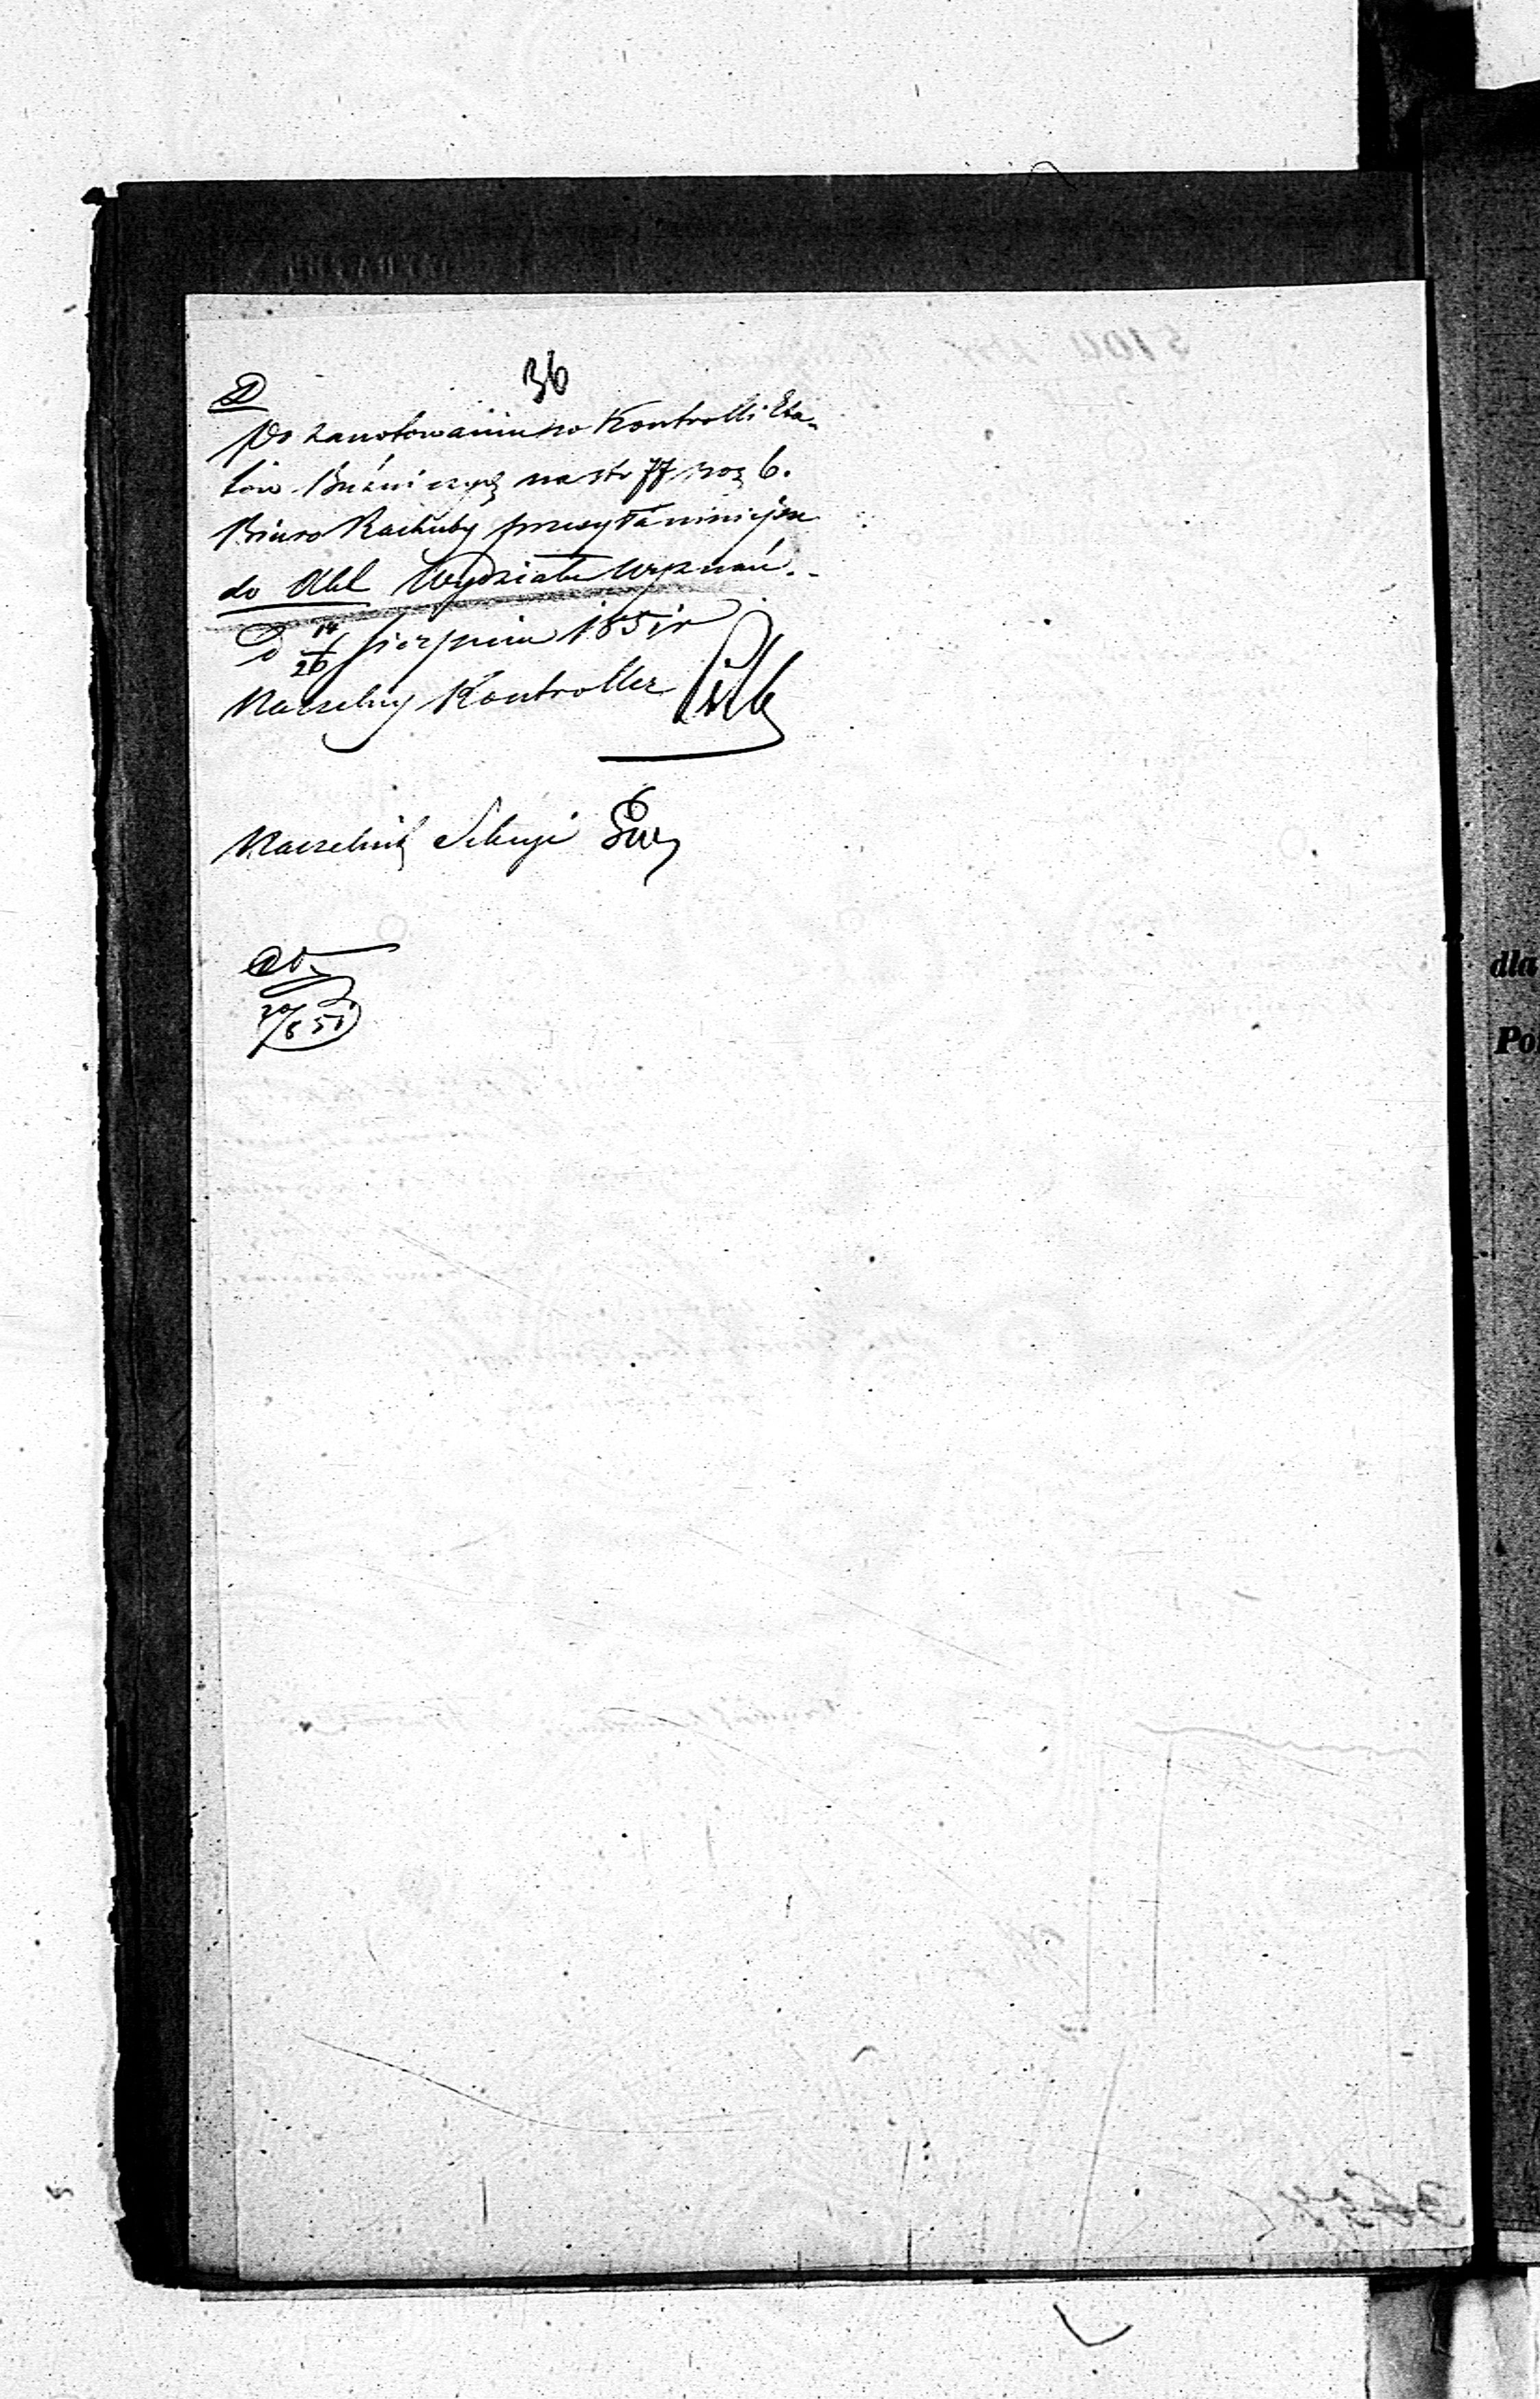 36
Po zanotowaniu w Kontrolli Eta-
tów Bóżniczych na str 77 poz 6.
Biuro Rachuby przesyła niniejsze
do Akt Wydziału Wyznań.
D 14/26 Sierpnia 1851 r
Naczelny Kontroller
Naczelnik Sekcyi
dla
Po